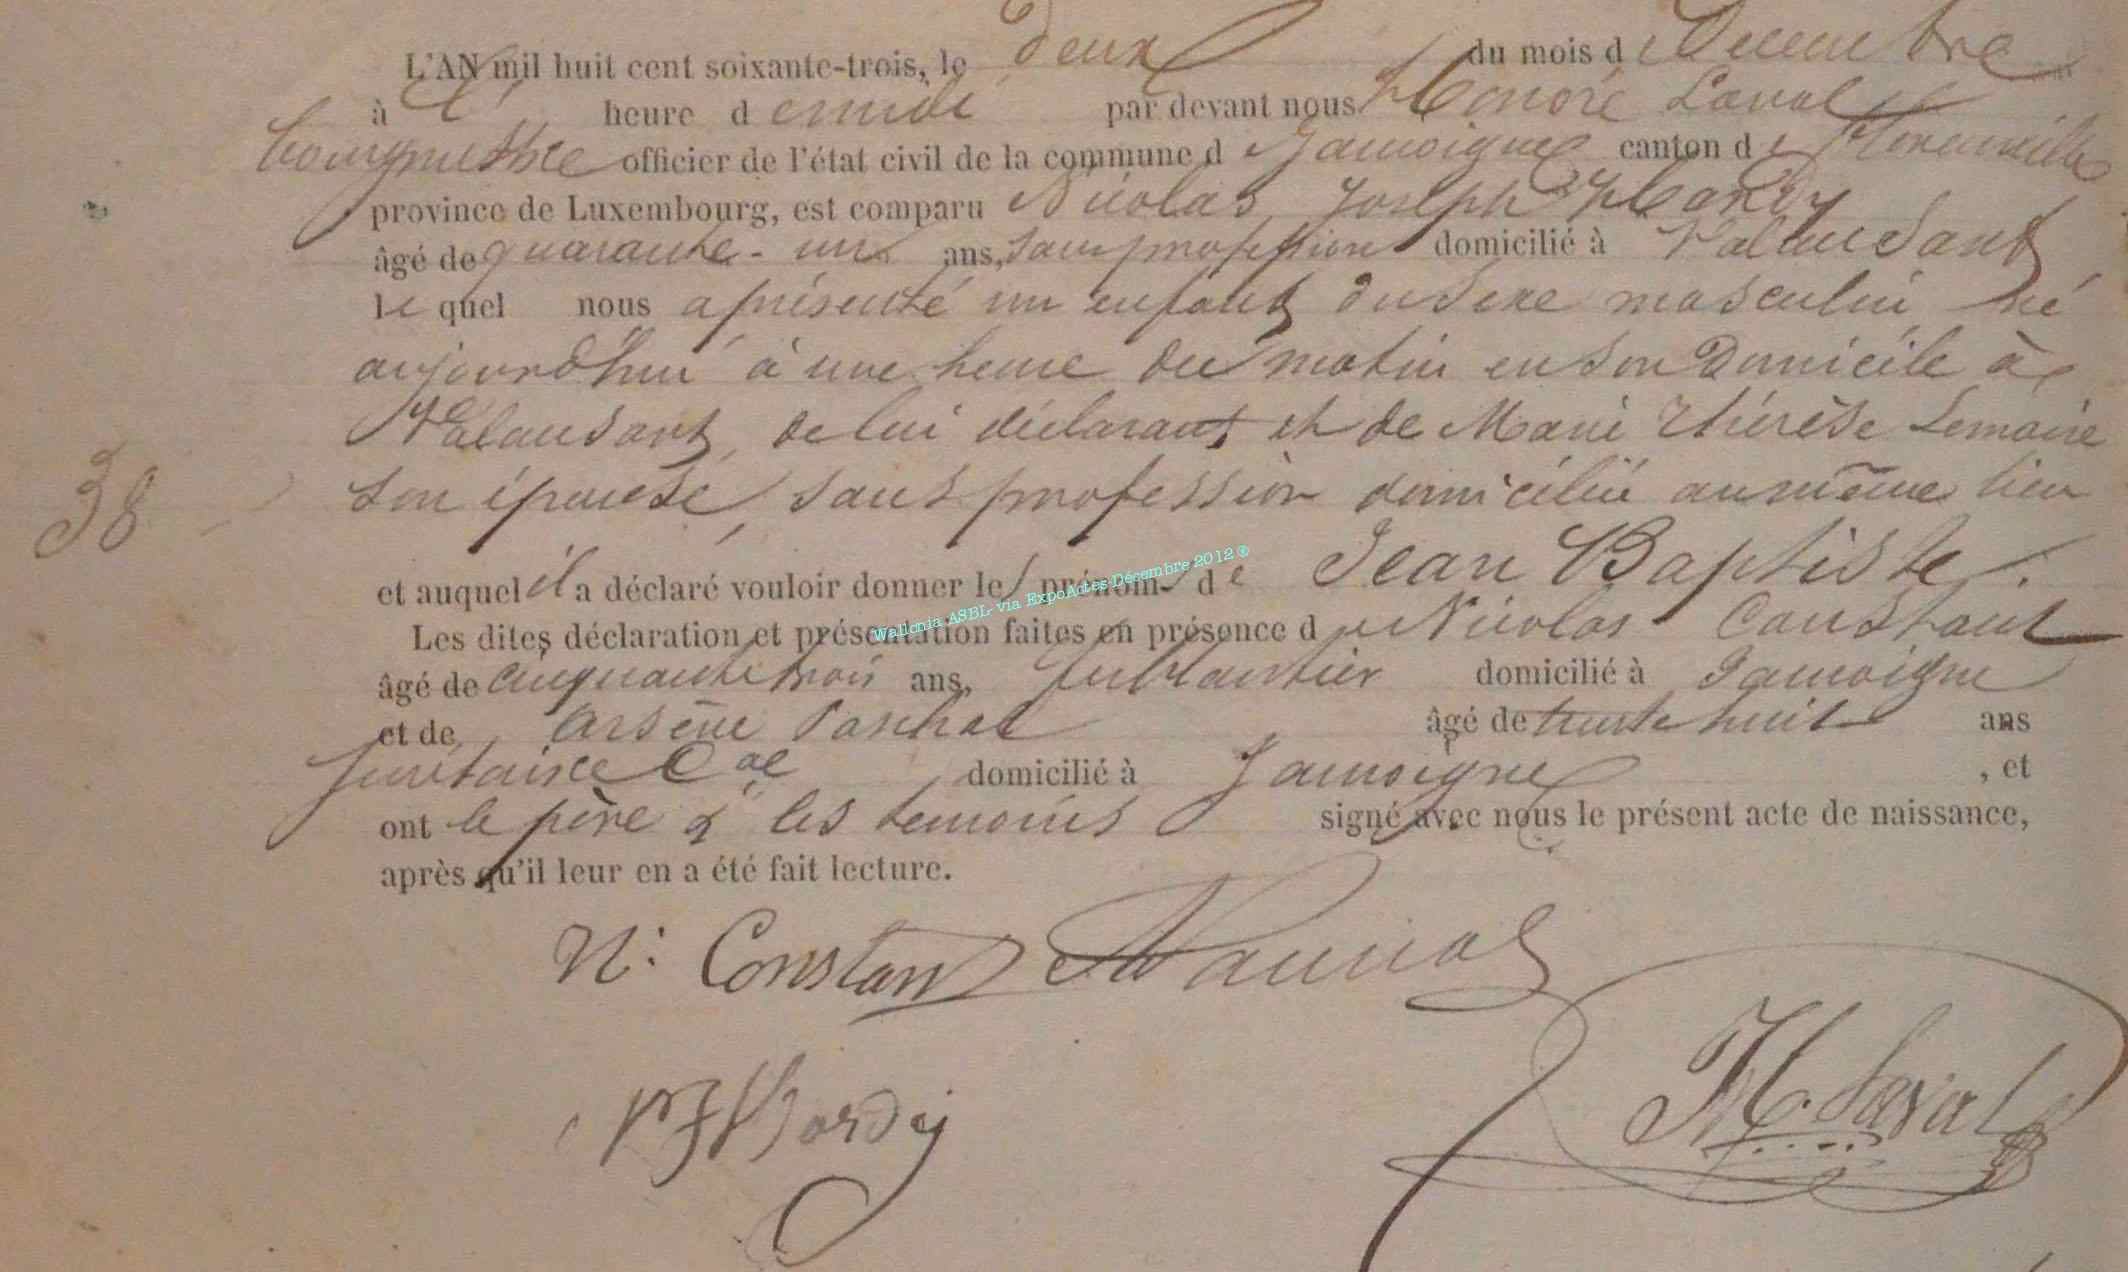 L'AN mil huit cent soixante-trois, le deux du mois de Décembre
à l' heure de midi par devant nous Honoré Laval
bourgmestre officier de l'état civil de la commune de Jamoigne canton de Florenville
province de Luxembourg, est comparu Nicolas Joseph Hardy
âgé de quarante-un ans, sans profession domicilié à Valansart
le quel nous a présenté un enfant du sexe masculin né
aujourd'hui à une heure du matin en son domicile à
Valansart, de lui déclarant et de Marie Thérèse Lemaire
son épouse, sans profession domiciliée au même lieu
38
et auquel il a déclaré vouloir donner les prénoms de Jean Baptiste.
Wallonia ASBL- via ExpoActes Décembre 2012 ®
Les dites déclaration et présentation faites en présence de Nicolas Constant
âgé de cinquante trois ans, domicilié à Jamoigne
et de Arsène âgé de trente huit ans
domicilié à Jamoigne, et
ont le père & les témoins signé avec nous le présent acte de naissance,
après qu'il leur en a été fait lecture.
N: Constant
NJHardy
H. Laval